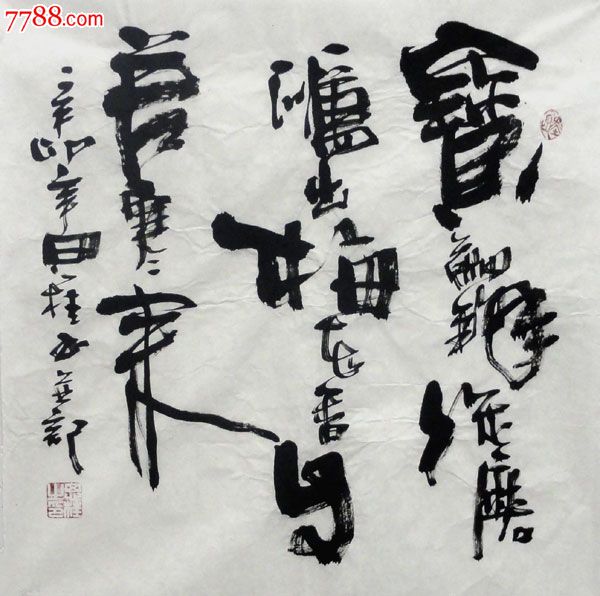 7788.com
寶劍鋒從磨
礪出梅花香自
苦寒來
辛卯年